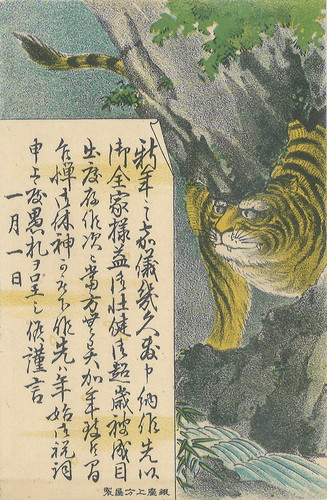 新年之嘉儀幾久敷申納候先以
御全家様益御壮健御超歳被成目
出度存候次ニ當方無異加年致候間
乍憚御休神可被下候先ハ年始御祝詞
申上度愚札ヲ呈し候謹言
一月一日
銀座上方屋製